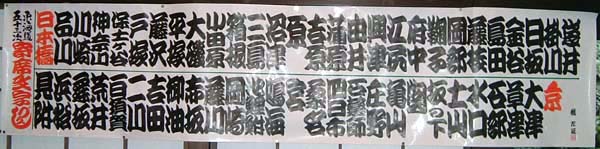 東海道
五十三次
寄席文字
日本橋
品川
川崎
神奈川
保土ヶ谷
戸塚
藤沢
平塚
大磯
小田原
箱根
三島
沼津
原
吉原
蒲原
由井
興津
江尻
府中
鞠子
岡部
藤枝
島田
金谷
日坂
掛川
袋井
見附
浜松
舞坂
荒井
白須賀
二川
吉田
御油
赤坂
藤川
岡崎
池鯉鮒
鳴海
宮
桑名
四日市
石薬師
庄野
亀山
関
坂の下
土山
水口
石部
草津
大津
京